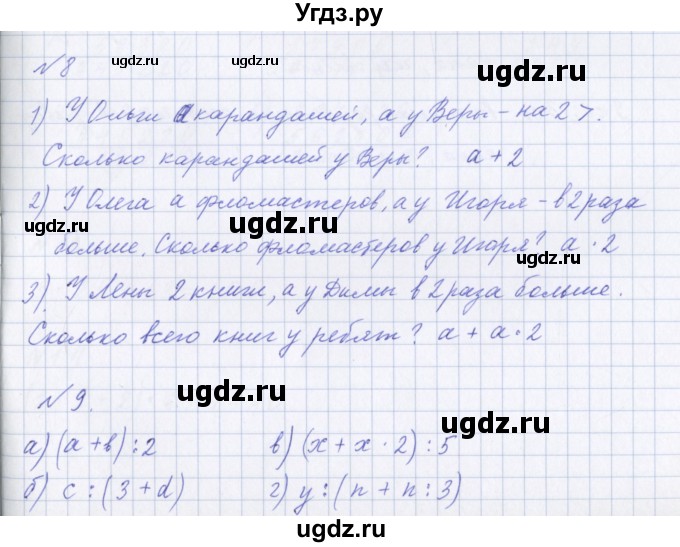 Угдз.ру
№8
1) У Ольги а карандашей, а у Веры - на 2 >.
Сколько карандашей у Веры? a + 2
2) У Олега а фломастеров, а у Игоря - в 2 раза
больше. Сколько фломастеров у Игоря? a · 2
3) У Лены 2 книги, а у Димы в 2 раза больше.
Сколько всего книг у ребят? a + a · 2
№9.
а) (a + b) : 2 в) (x + x · 2) : 5
б) c : (3 + d) г) y : (n + n : 3)
ugdz.ru
ugdz.ru
ugdz.ru
ugdz.ru
ugdz.ru
ugdz.ru
ugdz.ru
ugdz.ru
ugdz.ru
ugdz.ru
ugdz.ru
ugdz.ru
ugdz.ru